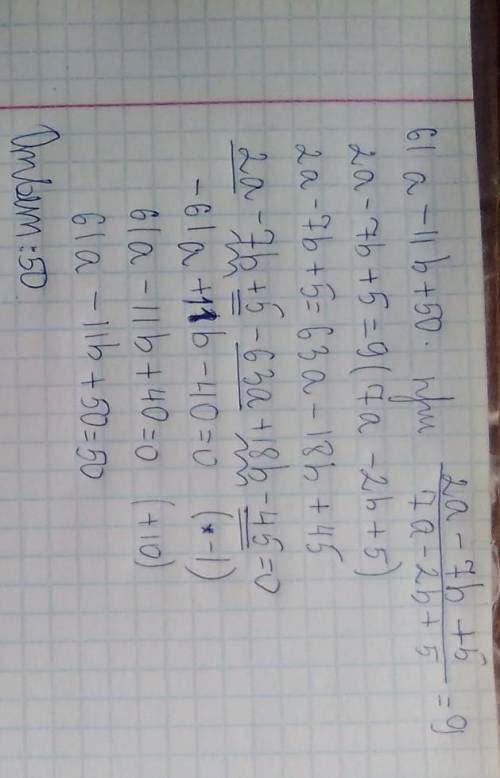 61a - 11b + 50. при (2a - 7b + 5)/(7a - 2b + 5) = 9
2a - 7b + 5 = 9(7a - 2b + 5)
2a - 7b + 5 = 63a - 18b + 45
2a - 7b + 5 - 63a + 18b - 45 = 0
-61a + 11b - 40 = 0 (* -1)
61a - 11b + 40 = 0 (+10)
61a - 11b + 50 = 10
Ответ: 50